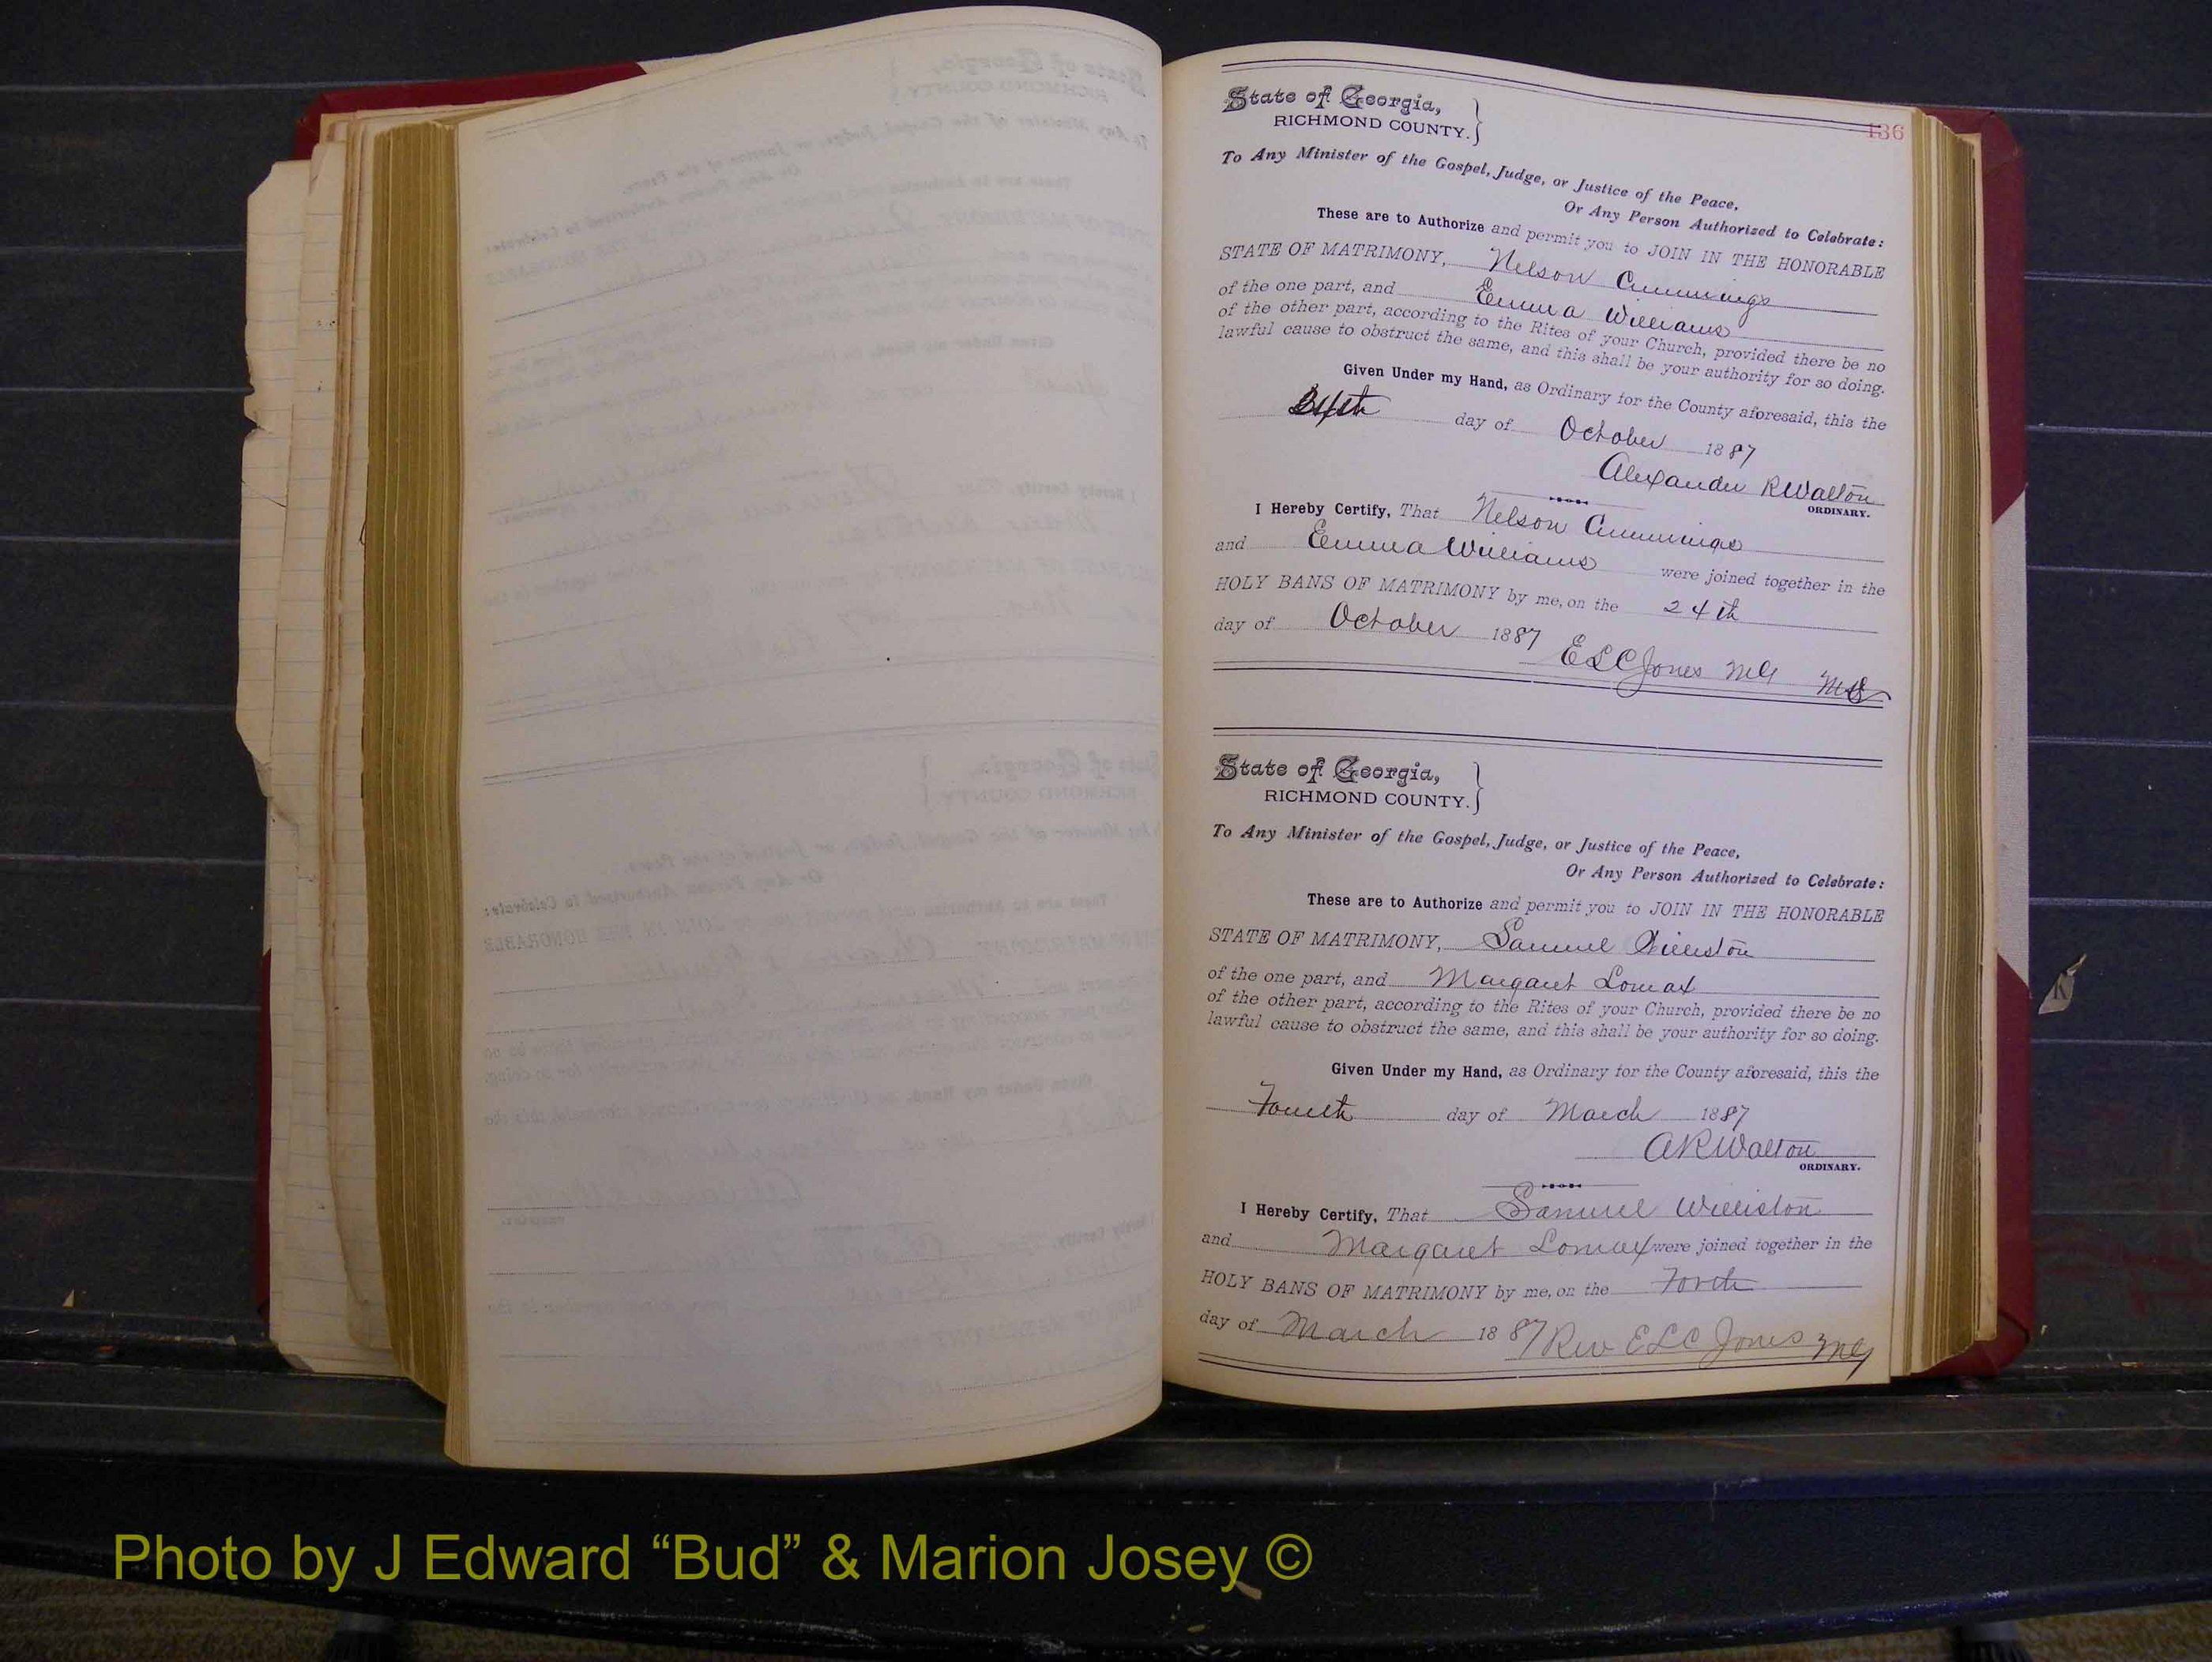 136
State of Georgia,
RICHMOND COUNTY.
To Any Minister of the Gospel, Judge, or Justice of the Peace,
Or Any Person Authorized to Celebrate:
These are to Authorize and permit you to JOIN IN THE HONORABLE
STATE OF MATRIMONY, Nelson Cummings
of the one part, and Emma Williams
of the other part, according to the Rites of your Church, provided there be no
lawful cause to obstruct the same, and this shall be your authority for so doing.
Given Under my Hand, as Ordinary for the County aforesaid, this the
day of October 1887
Alexander R Walton
ORDINARY.
I Hereby Certify, That Nelson Cummings
and Emma Williams were joined together in the
HOLY BANS OF MATRIMONY by me, on the 24th
day of October 1887 ELC Jones MG
State of Georgia,
RICHMOND COUNTY.
To Any Minister of the Gospel, Judge, or Justice of the Peace,
Or Any Person Authorized to Celebrate:
These are to Authorize and permit you to JOIN IN THE HONORABLE
STATE OF MATRIMONY, Samuel Williston
of the one part, and Margaret Lomax
of the other part, according to the Rites of your Church, provided there be no
lawful cause to obstruct the same, and this shall be your authority for so doing.
Given Under my Hand, as Ordinary for the County aforesaid, this the
Fourth day of March 1887
A R Walton
ORDINARY.
I Hereby Certify, That Samuel Williston
and Margaret Lomax were joined together in the
HOLY BANS OF MATRIMONY by me, on the Forth
day of March 1887 Rev ELC Jones MG
Photo by J Edward “Bud” & Marion Josey ©